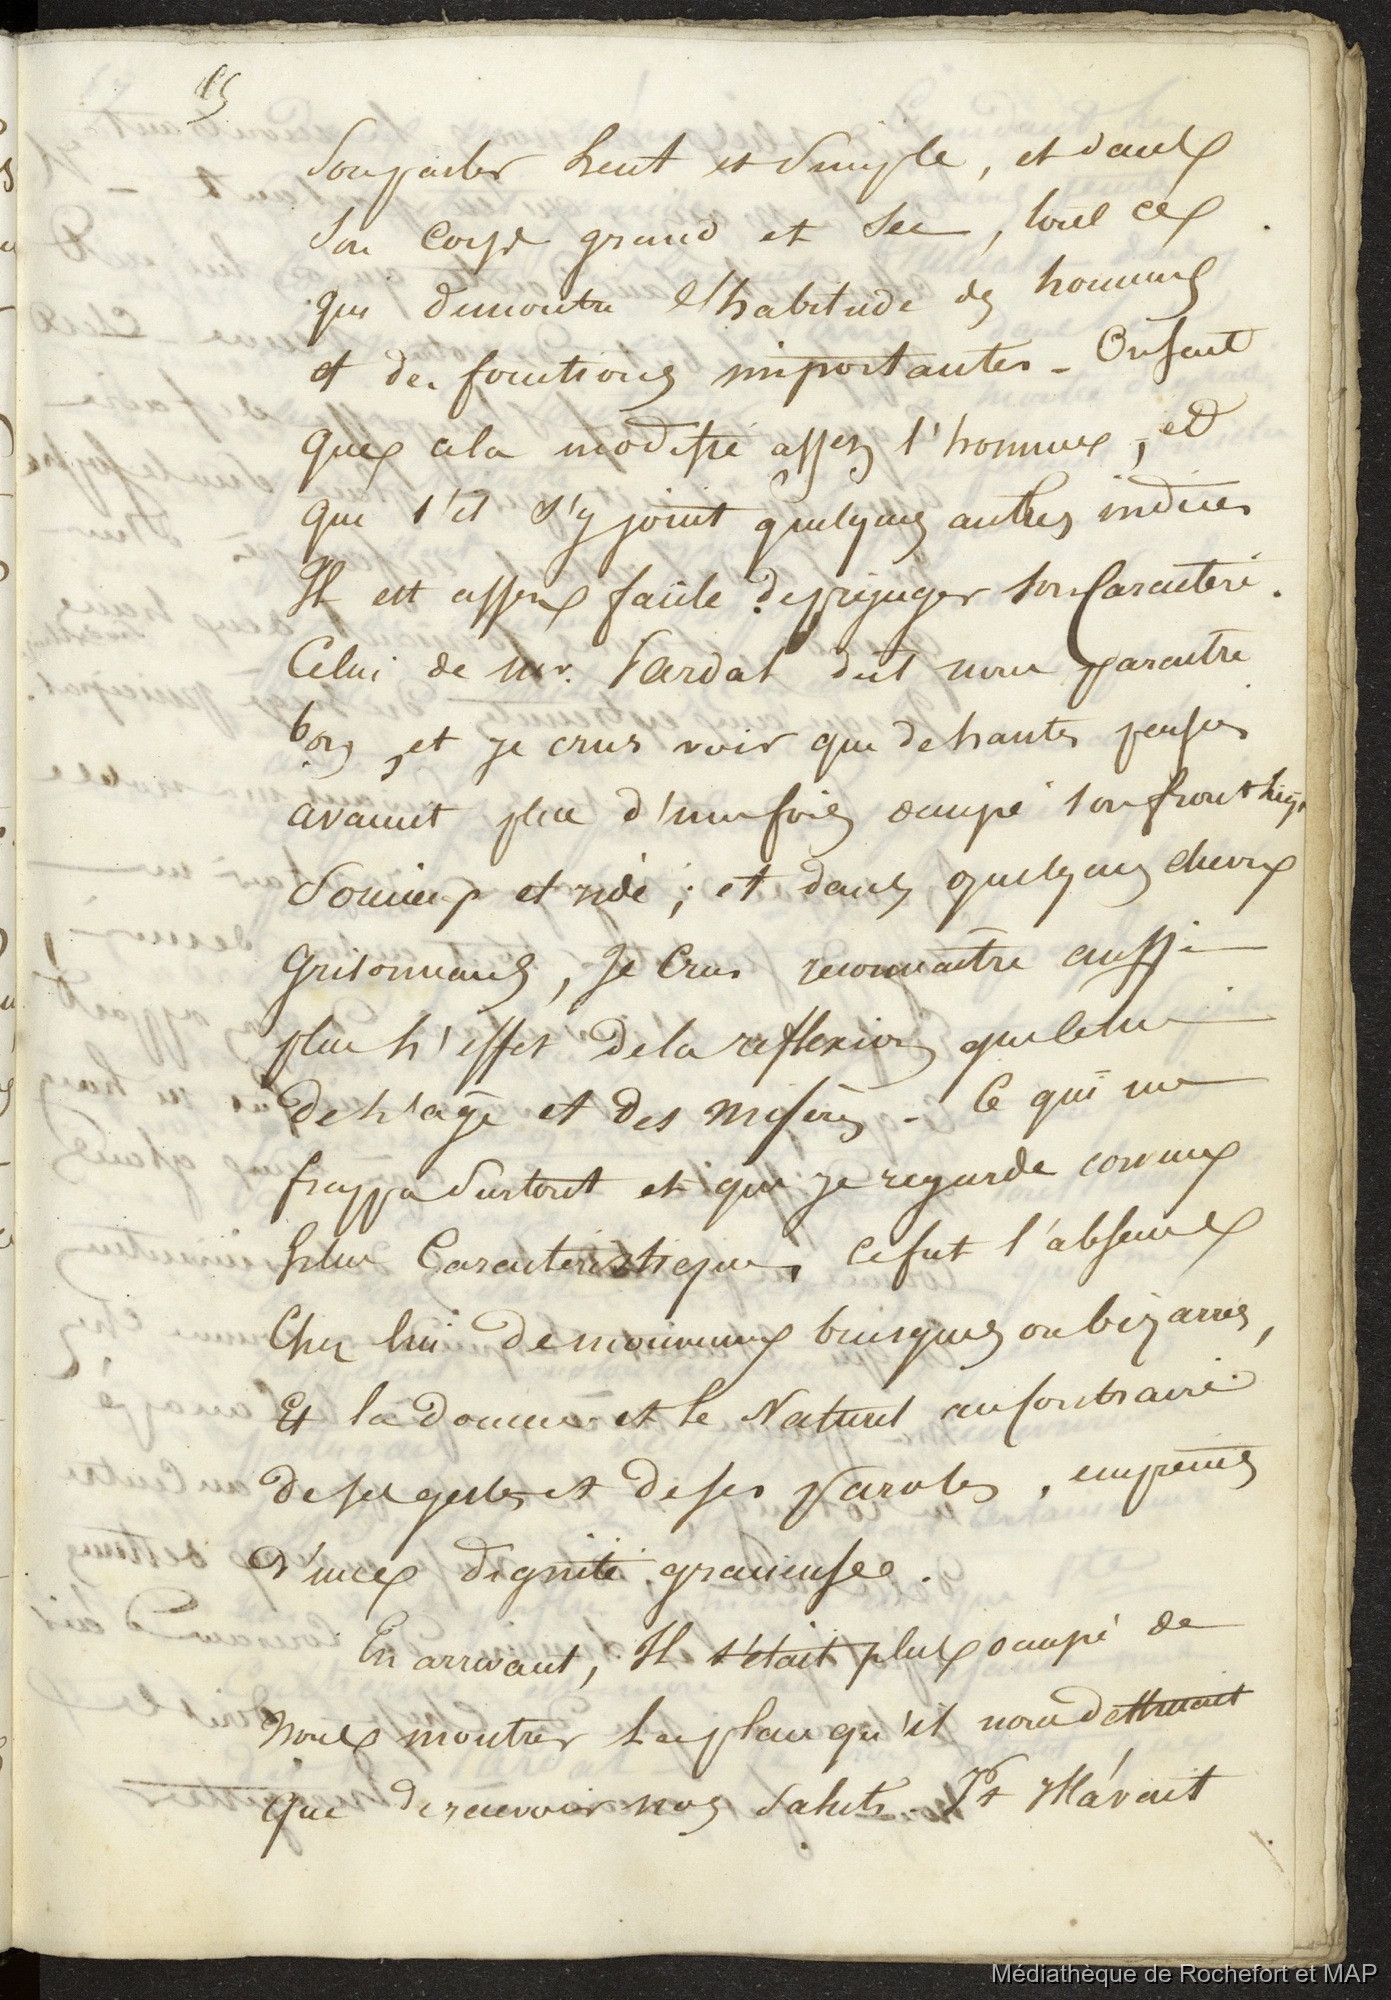 15
Son parler lent et simple, et dans
Son corps grand et sec, tout ce
qui démontre l'habitude des hommes
et des fonctions importantes - On sent
que cela modifie assez l'homme, et
que s'il s'y joint quelques autres indices
Il est assez facile de préjuger son Caractère.
Celui de Mr. Pardat dut nous paraître
bon, et je crus voir que de hautes pensées
avaient plus d'une fois occupé son front
Soucieux et ridé ; et dans quelques cheveux
Grisonnants, Je Crus reconnaître aussi
plus l'effet de la réflexion que celui
de l'âge et des misères - Ce qui me
frappa Surtout et que je regarde comme
plus Caractéristique, ce fut l'absence
Chez lui de mouvements brusques ou bizarres,
Et la douceur et le Naturel au contraire
de ses gestes et de ses Paroles, empreints
d'une dignité gracieuse.
En arrivant, Il s'était plus occupé de
Nous montrer le plan qu'il nous destinait
que de recevoir nos Saluts. Et Il avait
Médiathèque de Rochefort et MAP